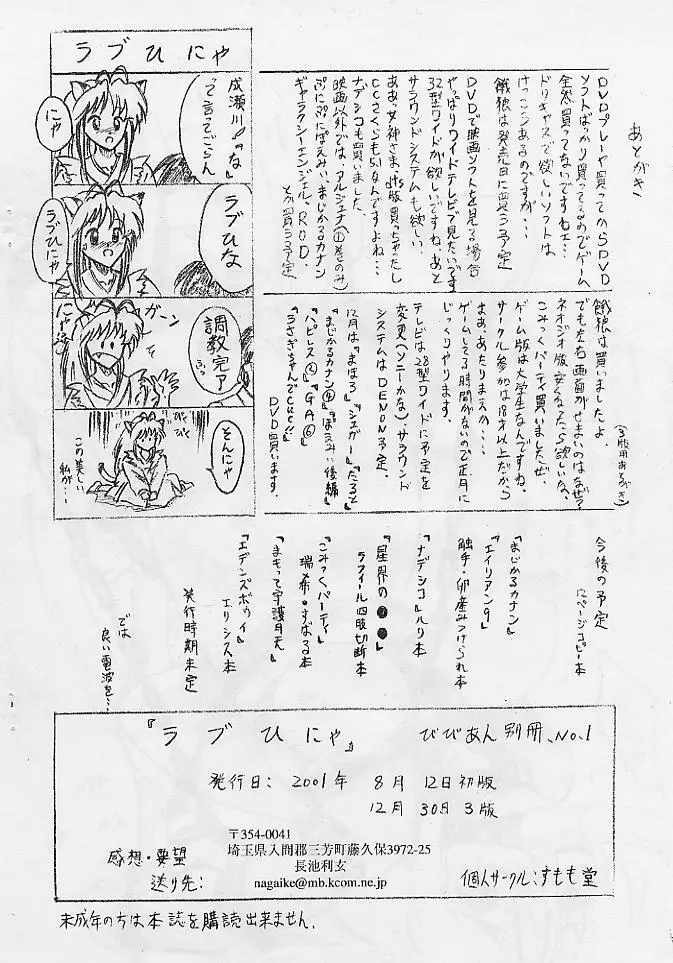 ラブひにゃ
成瀬川「な」
って言ってごらん
にゃ
ラブひな
ラブひにゃ
調教完了
ふっ
ガーン
にゃ
そんにゃ
びくびく
この美しい
私が・・・
あとがき
DVDプレーヤ買ってからDVD
ソフトばっかり買ってるのでゲーム
全然買ってないですねェ・・・
ドリキャスで欲しいソフトは
けっこうあるのですが・・・
餓狼は発売日に買う予定
DVDで映画ソフトを見る場合
やっぱりワイドテレビで見たいです
32型ワイドが欲しいですね。あと
サラウンドシステムも欲しい。
ああっ女神さまdts版買っちゃったし
CCさくらも5.1なんですよね・・・
ナデシコも買いました。
映画以外では、アルジェナ(①巻のみ)
ぷにぷにぽえみぃ、まじかるカナン
ギャラクシーエンジェル、R.O.D.
とか買う予定
(3版用あとがき)
餓狼は買いましたよ。
でも左右画面がせまいのはなぜ?
ネオジオ版安くなったら欲しいな。
こみっくパーティ買いましたぜ。
ゲーム版は大学生なんですね。
サークル参加は18才以上だから
まぁ、あたりまえか・・・
ゲームしてる時間がないので正月に
じっくりやります。
テレビは28型ワイドに予定を
変更(ソニーかな)、サラウンド
システムはDENON予定。
12月は『まほろ』『ジェガー』『たると』
『まじかるカナン④』『ぽえみぃ後編』
『ハピレス②』『GA⑥』
『うさぎちゃんでCue!!』
DVD買います。
今後の予定
12ページコピー本
『まじかるカナン』
『エイリアン9』
触手・卵産みつけられ本
『ナデシコ』ルリ本
『星界の●●』
ラフィール四肢切断本
『こみっくパーティ』
瑞希・すばる本
『まもって守護月天』
『エデンズボゥイ』
エリシス本
発行時期未定
では
良い電波を・・・
『ラブひにゃ』 びびあん別冊、No.1
発行日: 2001年 8月 12日 初版
12月 30日 3版
〒354-0041
埼玉県入間郡三芳町藤久保3972-25
長池利玄
nagaike@mb.kcom.ne.jp
感想・要望
送り先:
個人サークル:すもも堂
未成年の方は本誌を購読出来ません.